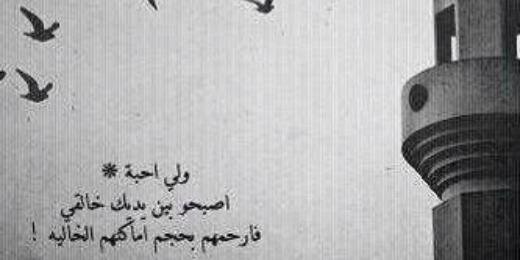 ولي احبة *
اصبحو بين يديك خالقي
فارحمهم بحجم اماكنهم الخاليه !